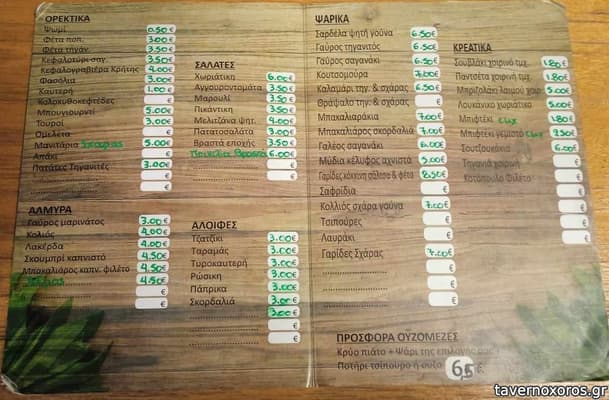 ΟΡΕΚΤΙΚΑ
Ψωμί 0.50€
Φέτα ποπ. 3.00€
Φέτα τηγάν. 3.50€
Κεφαλοτύρι σαγ. 3.50€
Κεφαλογραβιέρα Κρήτης 4.00€
Φασόλια 3.00€
Καυτερή 1.00€
Κολοκυθοκεφτέδες €
Μπουγιουρντί 5.00€
Τουρσί 3.00€
Ομελέτα €
Μανιτάρια 5.00€
Απάκι €
Πατάτες Τηγανιτές 3.00€
€
€
ΑΛΜΥΡΑ
Γαύρος μαρινάτος 3.00€
Κολιός 4.00€
Λακέρδα 4.00€
Σκουμπρί καπνιστό 4.50€
Μπακαλιάρος καπν. φιλέτο 4.50€
4.50€
€
ΣΑΛΑΤΕΣ
Χωριάτικη 6.00€
Αγγουροντομάτα 3.50€
Μαρουλί 3.50€
Πικάντικη 3.50€
Μελιτζάνα ψητ. 4.00€
Πατατοσαλάτα 3.00€
Βραστά εποχής 3.50€
6.00€
€
€
ΑΛΟΙΦΕΣ
Τζατζίκι 3.00€
Ταραμάς 3.00€
Τυροκαυτερή 3.00€
Ρώσικη 3.00€
Πάπρικα 3.00€
Σκορδαλιά 3.00€
3.00€
€
€
ΨΑΡΙΚΑ
Σαρδέλα ψητή γούνα 6.50€
Γαύρος τηγανιτός 6.50€
Γαύρος σαγανάκι 6.50€
Κουτσομούρα 7.00€
Καλαμάρι τηγ. & σχάρας 6.50€
Θράψαλο τηγ. & σχάρας €
Μπακαλιαράκια 7.00€
Μπακαλιάρος σκορδαλιά 7.00€
Γαλέος σαγανάκι 6.00€
Μύδια κέλυφος αχνιστά 5.00€
Γαρίδες κόκκινη σάλτσα & φέτα 8.50€
Σαφρίδια €
Κολλιός σχάρα γούνα 7.00€
Τσιπούρες €
Λαυράκι €
Γαρίδες Σχάρας 7.00€
€
€
€
ΚΡΕΑΤΙΚΑ
Σουβλάκι χοιρινό τμχ. 1.80€
Παντσέτα χοιρινή τμχ. 1.80€
Μπριζολάκι λαιμού χοιρ. 5.00€
Λουκάνικο χωριάτικο 5.00€
Μπιφτέκι 1.80€
Μπιφτέκι γεμιστό 2.50€
Σουτζουκάκια 6.00€
Τηγανιά χοιρινή €
Κοτόπουλο Φιλέτο €
€
€
€
ΠΡΟΣΦΟΡΑ ΟΥΖΟΜΕΖΕΣ
Κρύο πιάτο + Ψάρι της επιλογής
Ποτήρι τσίπουρο ή ούζο 6,5 €.
tavernoxoros.gr